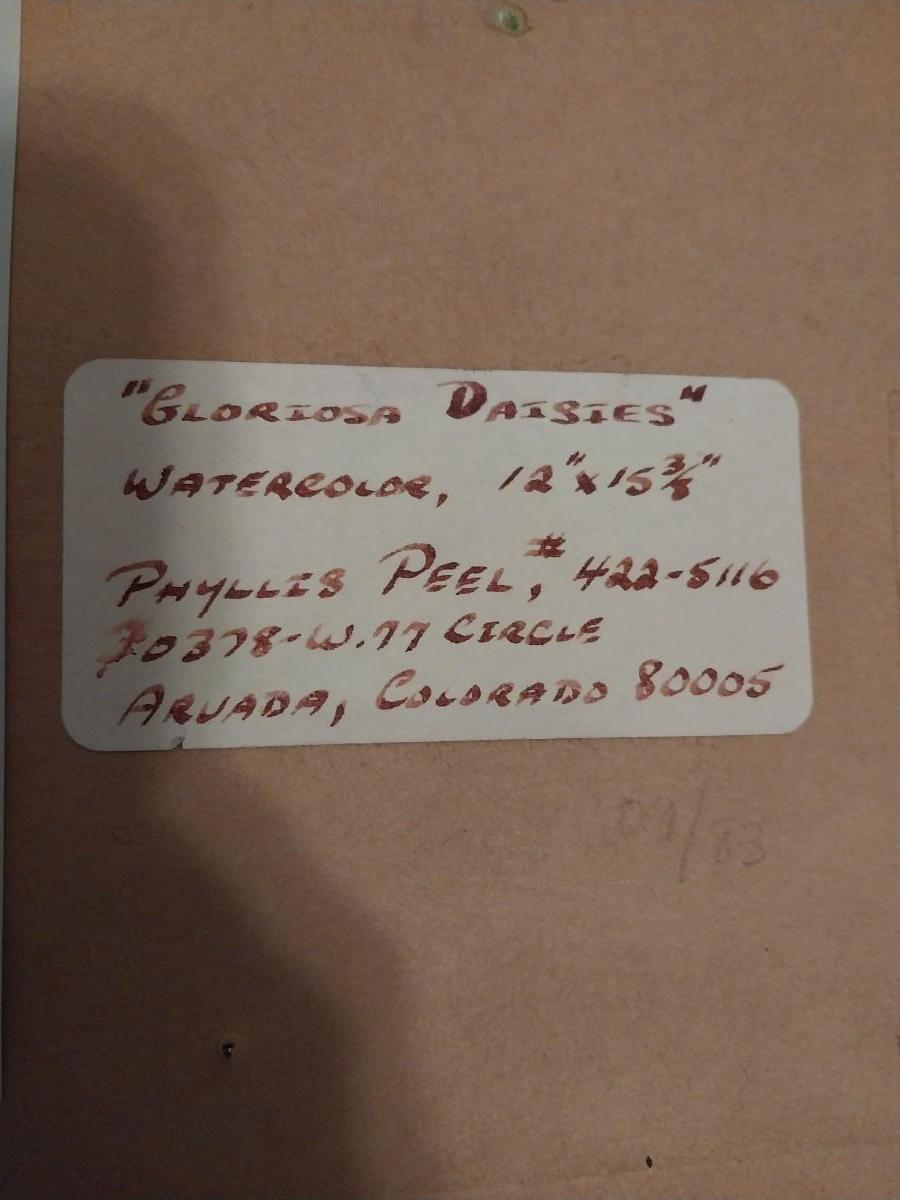 "GLORIOSA DAISIES"
WATERCOLOR, 12" x 15 3/8"
PHYLLIS PEEL, # 422-5116
10378-W.77 CIRCLE
ARVADA, COLORADO 80005
07/83